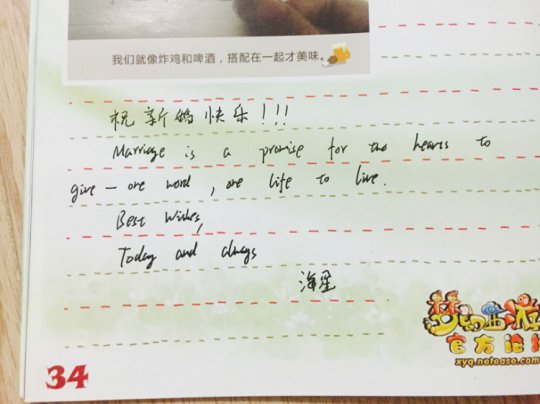 我们就像炸鸡和啤酒，搭配在一起才美味。
祝新婚快乐！！！
Marriage is a promise for two hearts to
give — one word, one life to live.
Best Wishes,
Today and always
海星
梦幻西游
官方论坛
xyq.netease.com
34